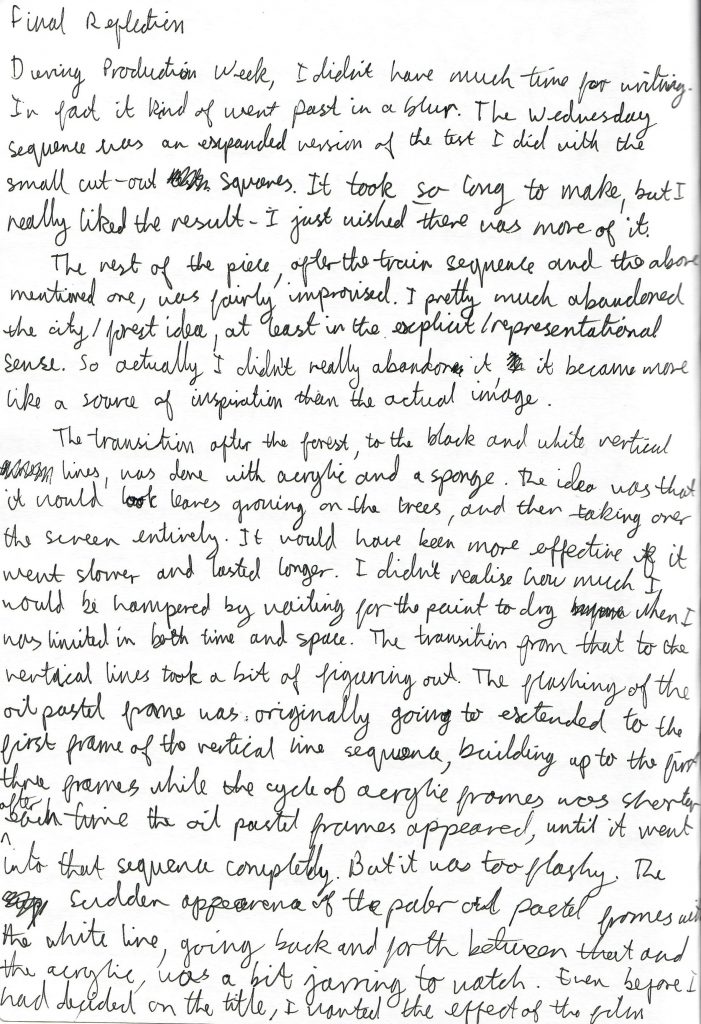 Final Reflection
During Production Week, I didn't have much time for writing.
In fact it kind of went past in a blur. The Wednesday
sequence was an expanded version of the test I did with the
small cut-out squares. It took so long to make, but I
really liked the result - I just wished there was more of it.
The rest of the piece, after the train sequence and the above
mentioned one, was fairly improvised. I pretty much abandoned
the city/forest idea, at least in the explicit/representational
sense. So actually I didn't really abandon it, it became more
like a source of inspiration than the actual image.
The transition after the forest, to the black and white vertical
lines, was done with acrylic and a sponge. The idea was that
it would look leaves growing on the trees, and then taking over
the screen entirely. It would have been more effective if it
went slower and lasted longer. I didn't realise how much I
would be hampered by waiting for the paint to dry when I
was limited in both time and space. The transition from that to the
vertical lines took a bit of figuring out. The flashing of the
oil pastel frame was originally going to extended to the
first frame of the vertical line sequence, building up to the first
three frames while the cycle of acrylic frames was shorter
after each time the oil pastel frames appeared, until it went
into that sequence completely. But it was too flashy. The
sudden appearence of the paler oil pastel frames with
the white line, going back and forth between that and
the acrylic, was a bit jarring to watch. Even before I
had decided on the title, I wanted the effect of the film